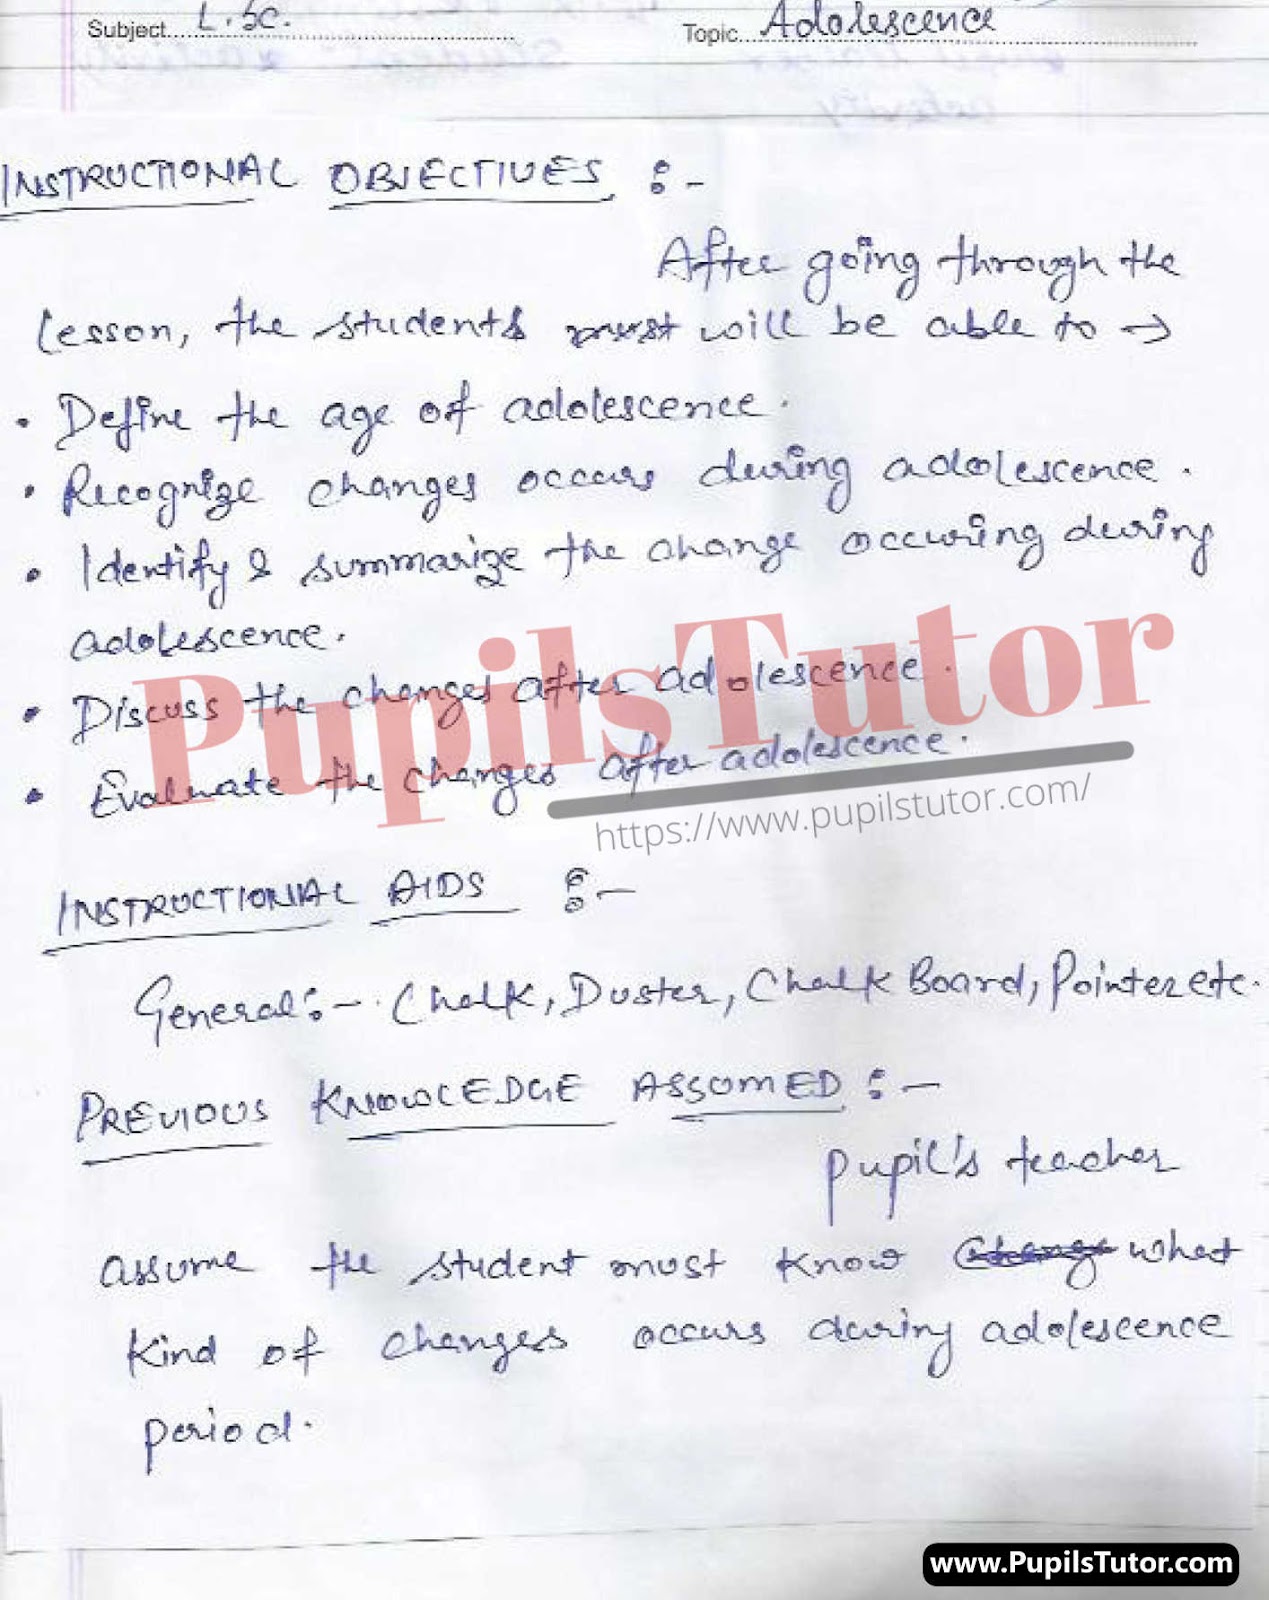 Subject...L.Sc............................ Topic...Adolescence............................
INSTRUCTIONAL OBJECTIVES :-
After going through the
lesson, the students must will be able to →
• Define the age of adolescence.
• Recognize changes occurs during adolescence.
• Identify & summarize the change occuring during
adolescence.
• Discuss the changes after adolescence.
• Evaluate the changes after adolescence.
PupilsTutor
https://www.pupilstutor.com/
INSTRUCTIONAL AIDS :-
General:- Chalk, Duster, Chalk Board, Pointer etc.
PREVIOUS KNOWLEDGE ASSUMED :-
Pupil's teacher
assume the student must know change what
kind of changes occurs during adolescence
period.
www.PupilsTutor.com